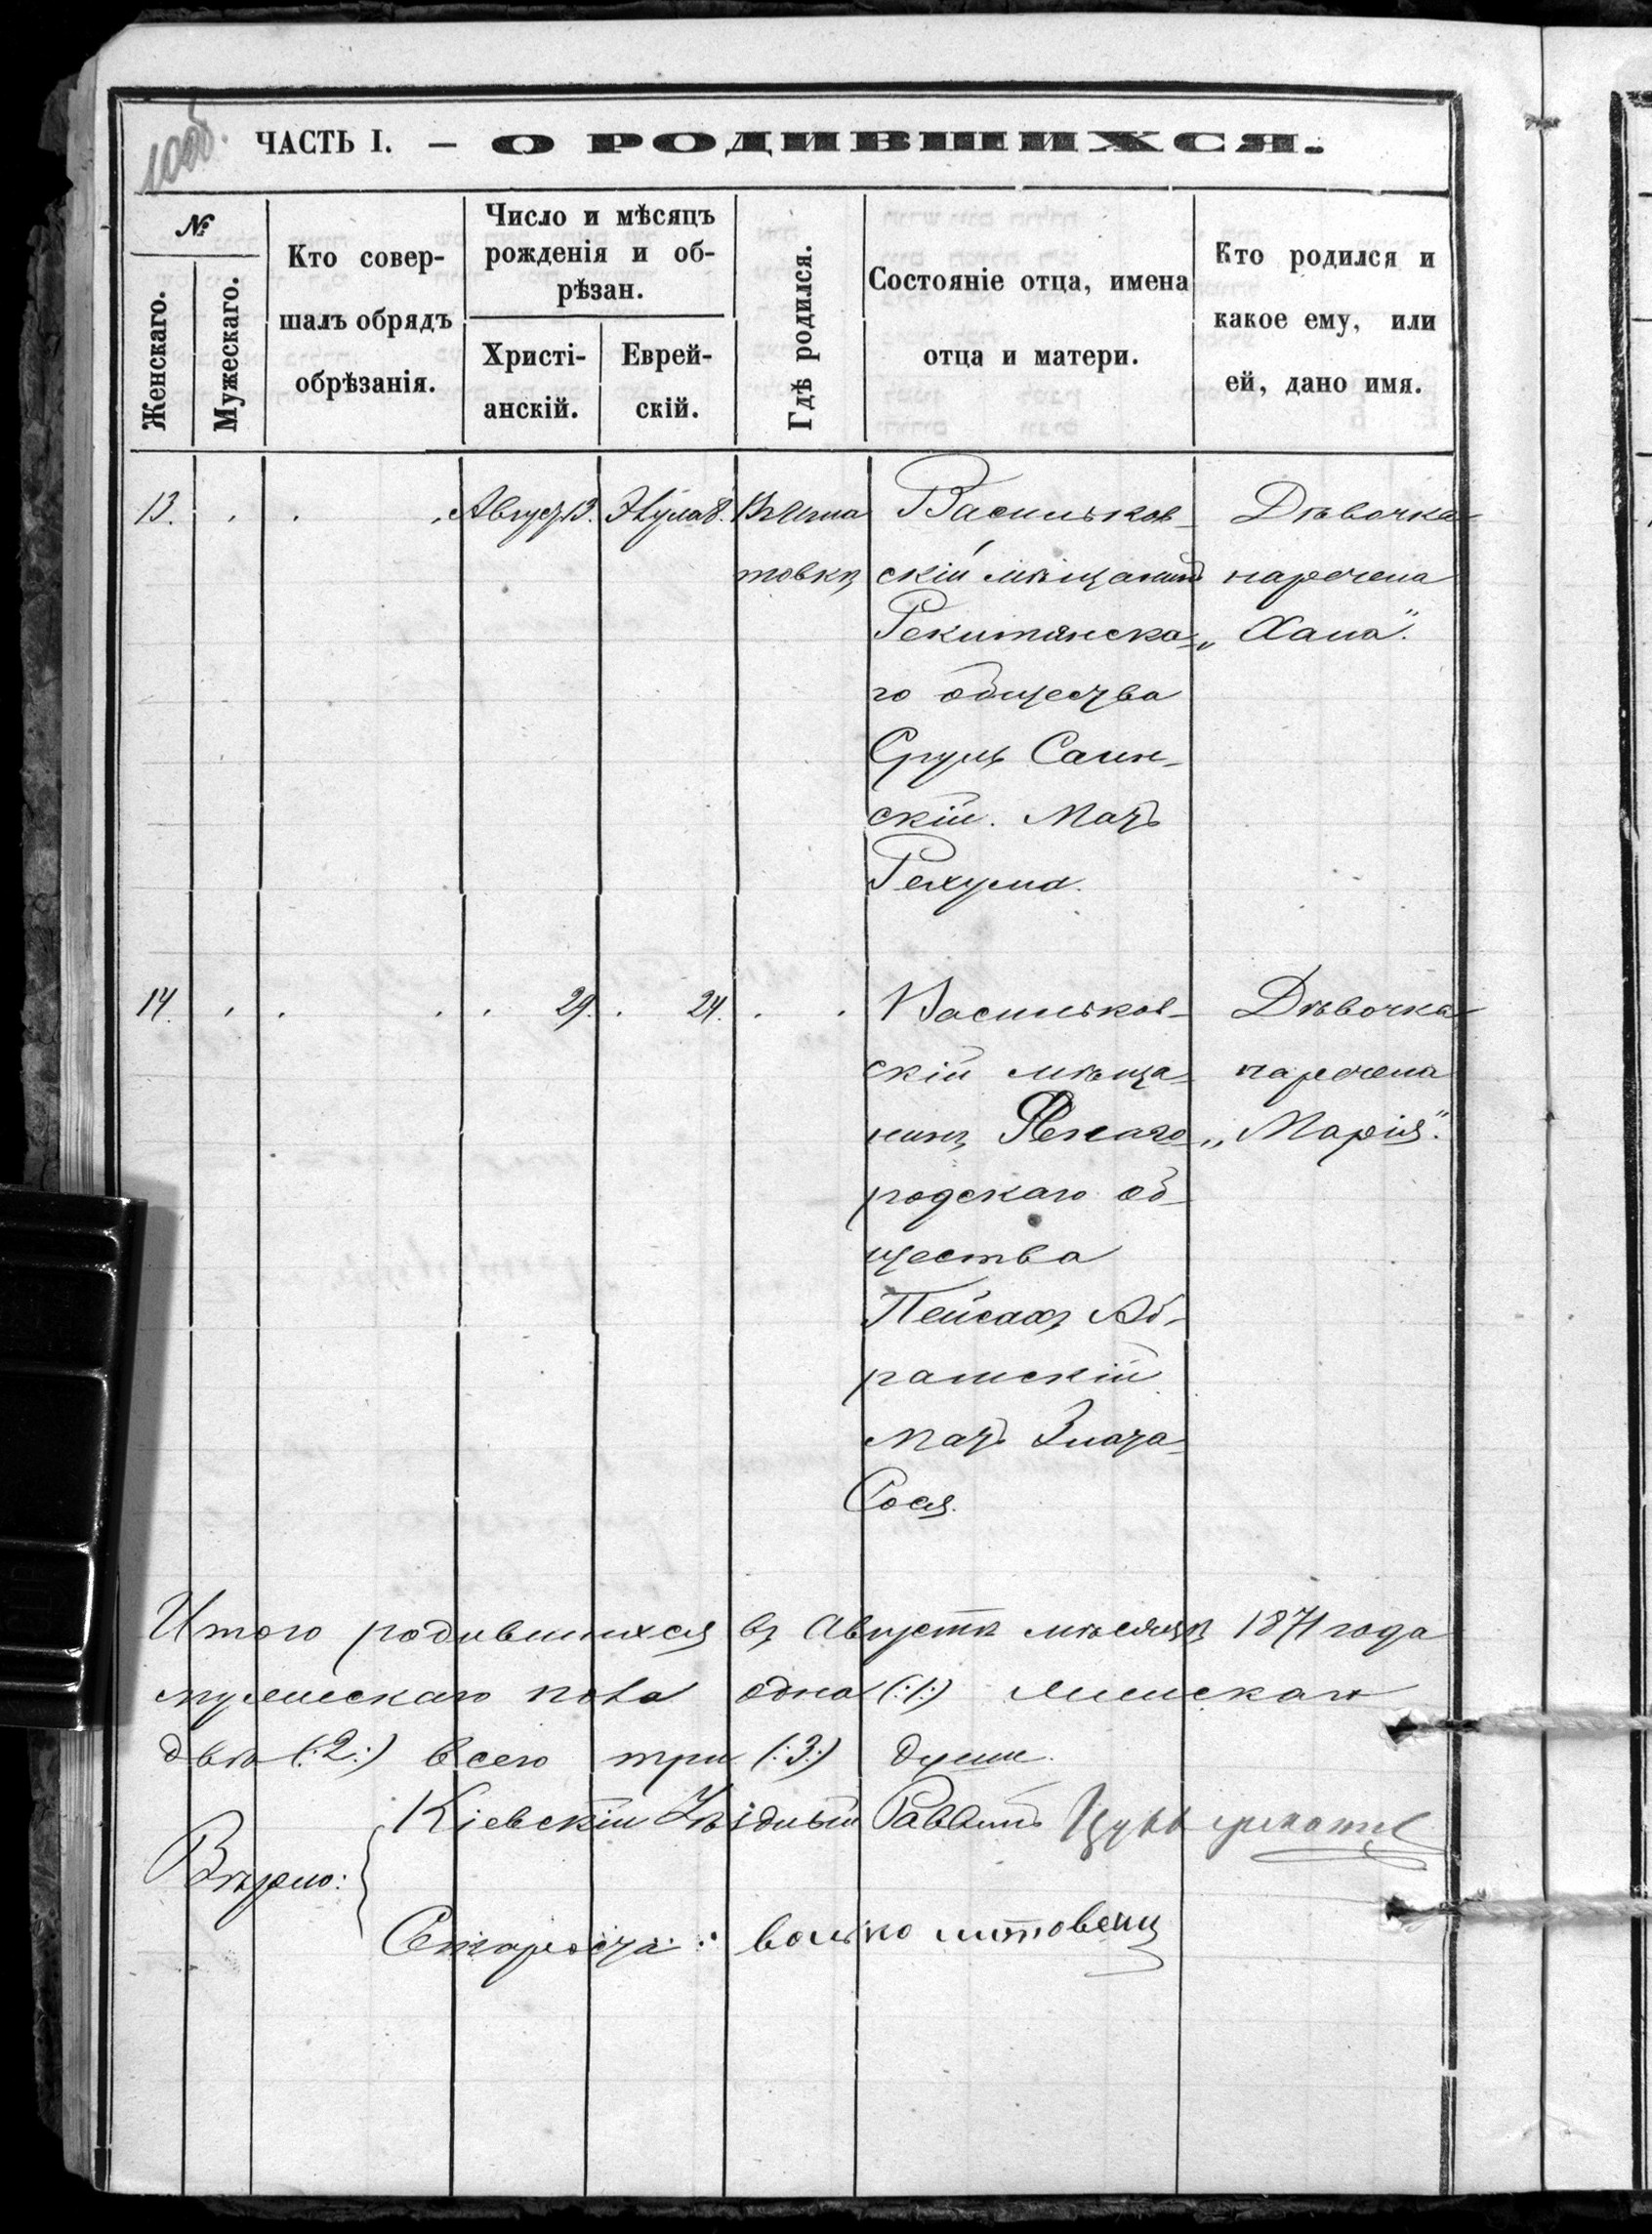 100об.
ЧАСТЬ I. — О РОДИВШИХСЯ.
№
Женскаго.
Мужескаго.
Кто совер-
шалъ обрядъ
обрѣзанія.
Число и мѣсяцъ
рожденія и об-
рѣзан.
Христі-
анскій.
Еврей-
скій.
Гдѣ родился.
Состояніе отца, имена
отца и матери.
Кто родился и
какое ему, или
ей, дано имя.
13. Август 13. Элула 8. Въ Игна
товкѣ
Васильков-
скій мѣщанинъ
Рекитянска-
го общества
Сруль Салин-
скій. Мать
Рехума.
Дѣвочка
наречена
„Хана“.
14. 29. 24.
Васильков-
скій мѣща-
нинъ Ясного-
родскаго об-
щества
Пейсахъ Аб-
рамскій
Мать Злата
Сося.
Дѣвочка
наречена
„Марія“.
Итого родившихся въ Августѣ мѣсяцѣ 1871 года
мужескаго пола одна (:1:) женскаго
двѣ (:2:) всего три (:3:) души.
Вѣрно:
Кіевскій Уѣздный Раввинъ
Староста: волько литовецъ